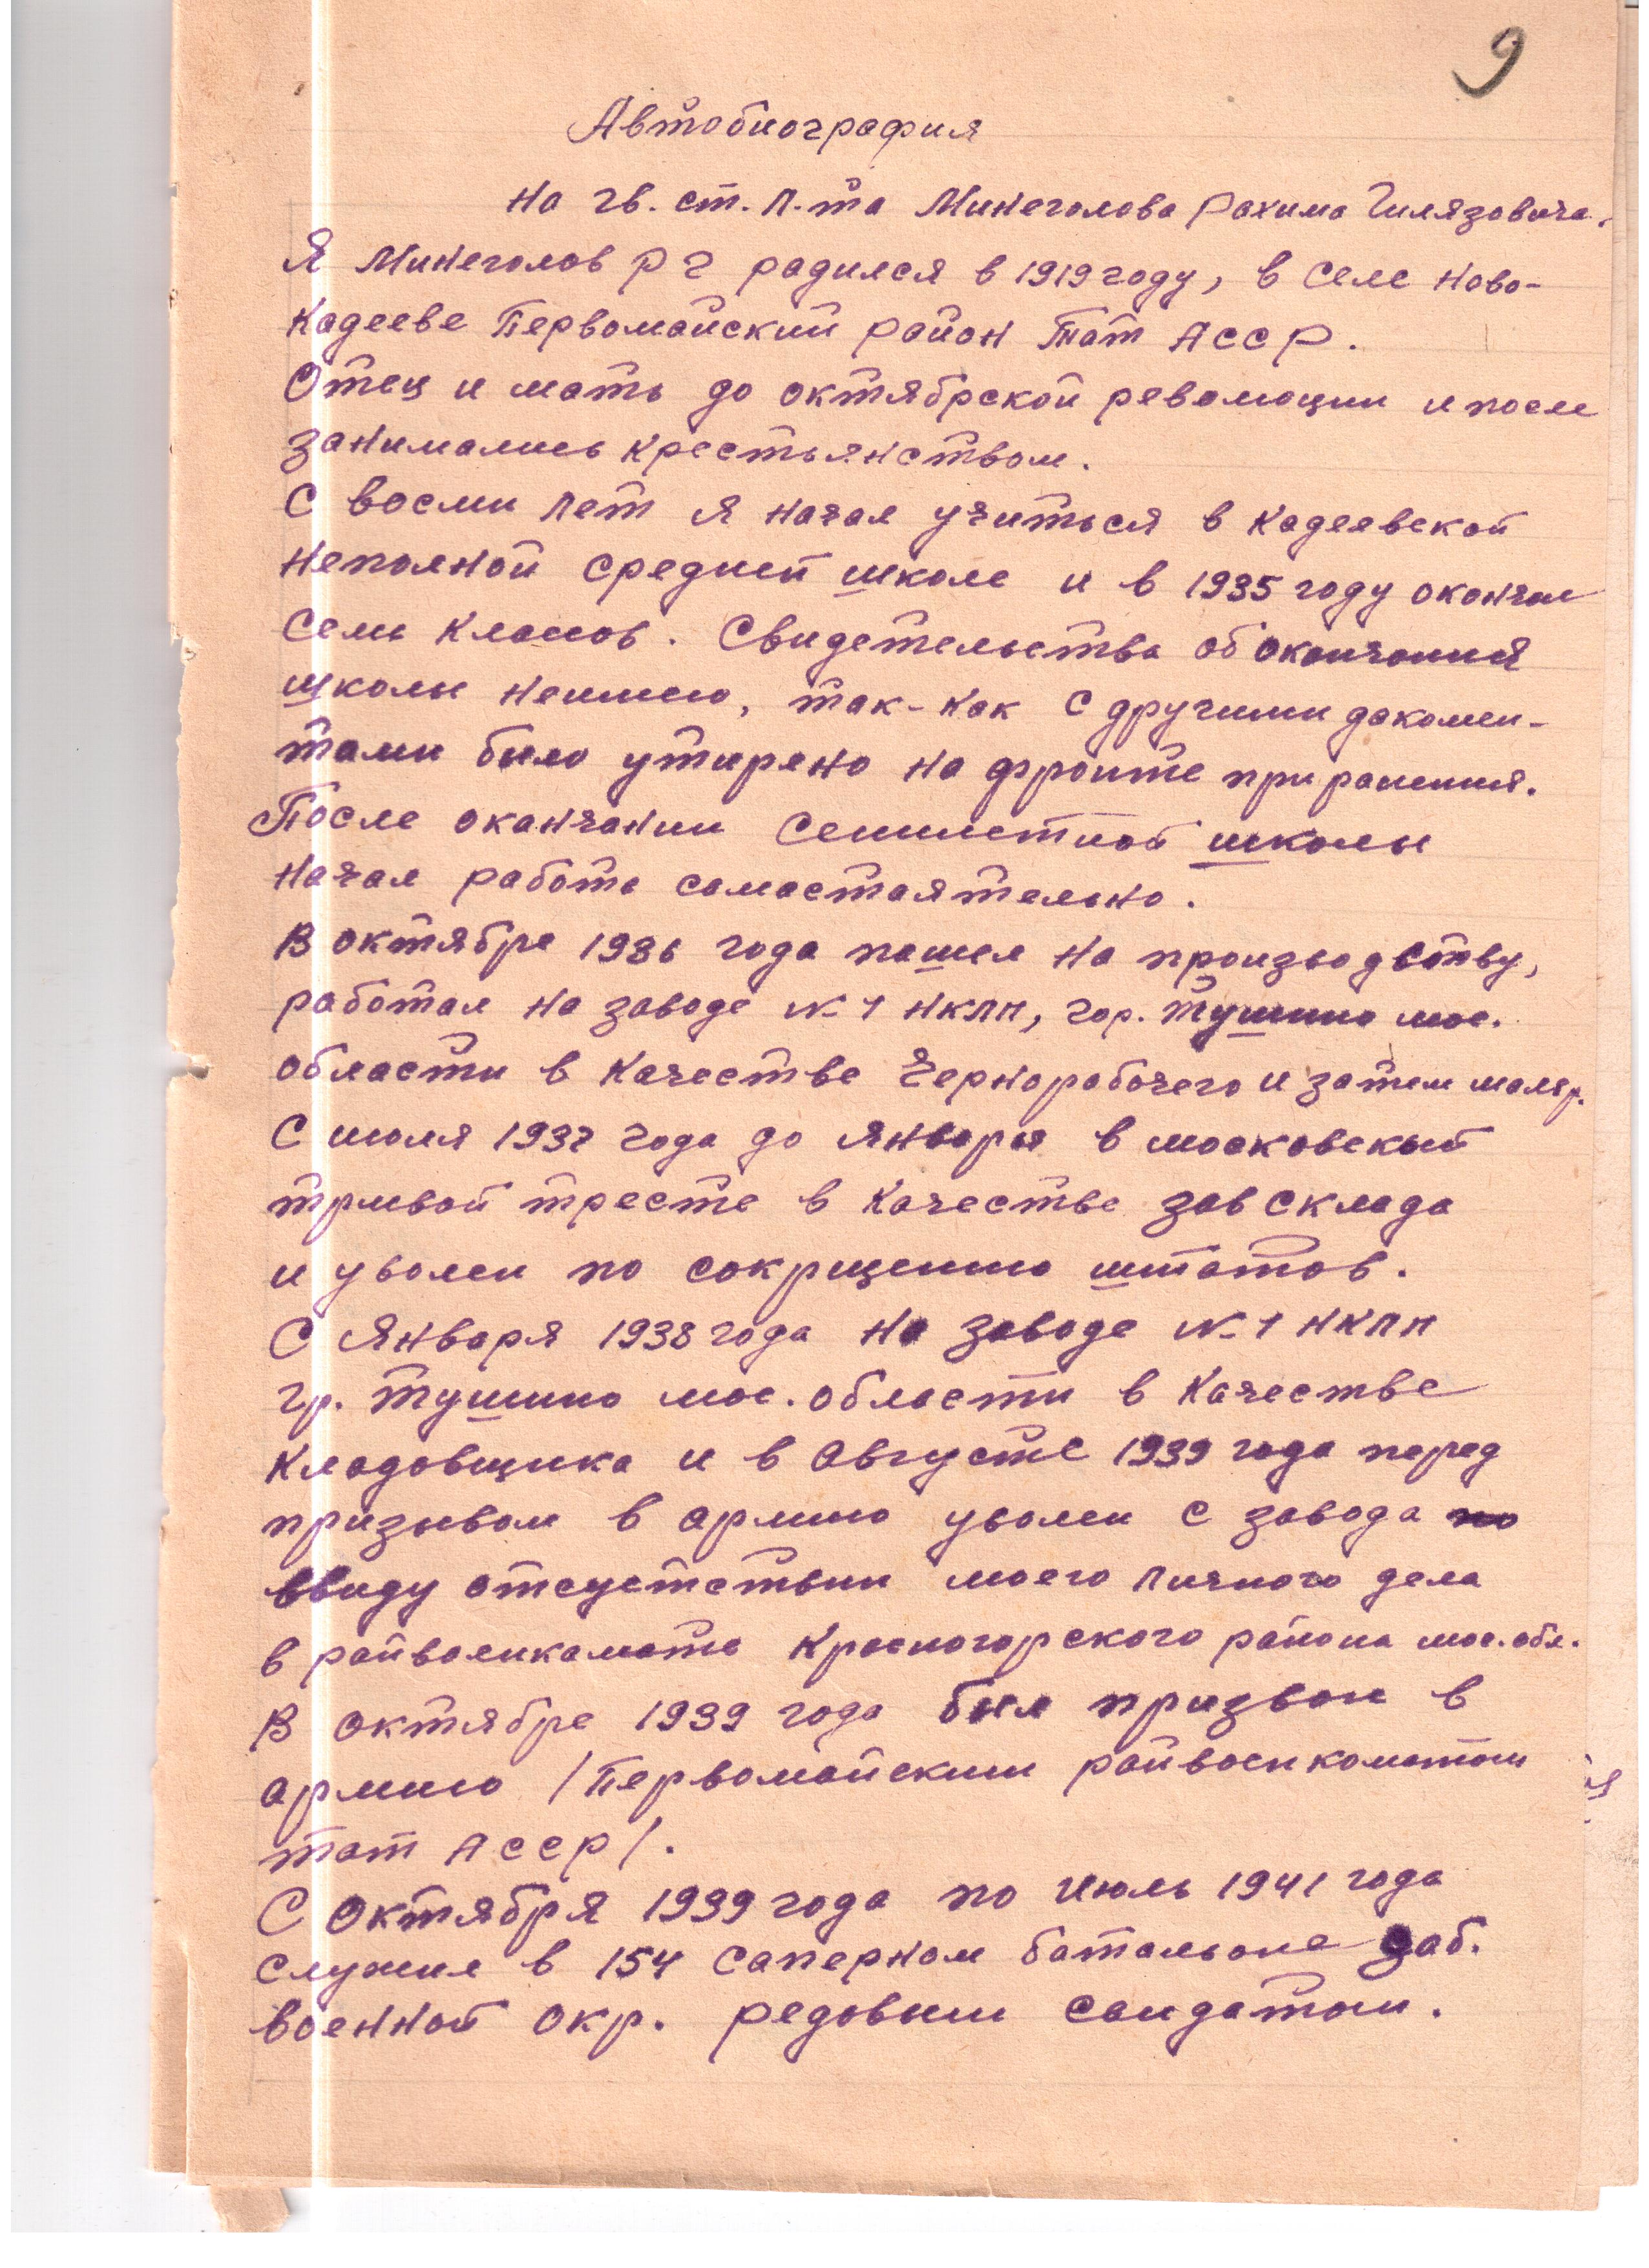 9
Автобиография
на гв. ст. л-та Минеголова Рахима Гилязовича.
Я Минеголов Р Г радился в 1919 году, в селе Ново-
Кадееве Первомайский район Тат АССР.
Отец и мать до октябрской революции и после
занимались крестьянством.
С восми лет я начал учиться в Кадеевской
неполной средней школе и в 1935 году окончил
семь класов. Свидетельства об окончания
школы неимею, так-как с другими докомен-
тами было утиряно на фронте при ранения.
После оканчании семилетной школы
начал работь самастаятельно.
В октябре 1936 года пашел на произво дству,
работал на заводе № 1 НКЛП, гор. Тушино мос.
области в качестве Чернорабочего и затем маляр.
С июля 1937 года до января в московскый
тресте в качестве зав склада
и уволен по сокрщению штатов.
С Января 1938 года на заводе № 1 НКЛП
гр. Тушино мос. области в качестве
Кладовщика и в Августе 1939 года перед
призывом в армию уволен с завода по
ввиду отсуствии моего личного дела
в райвоенкамате Красногорского района мос. обл.
В октябре 1939 года был призван в
армию /Первомайским райвоенкоматом
тат АССР/.
С Октября 1939 года по июль 1941 года
служил в 154 саперном батальоне Заб.
военной окр. редовым салдатом.